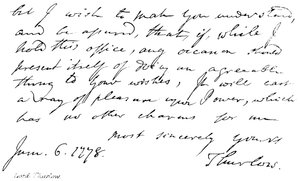 but I wish to make you understand,
and be assured, that, if, while I
hold this office, any occasion should
present itself of doing an agreeable
thing to your wishes, it will cast
a ray of pleasure upon Power, which
has no other charms for me
most sincerely yours
Thurlow.
Jan. 6. 1778.
Lord Thurlow.